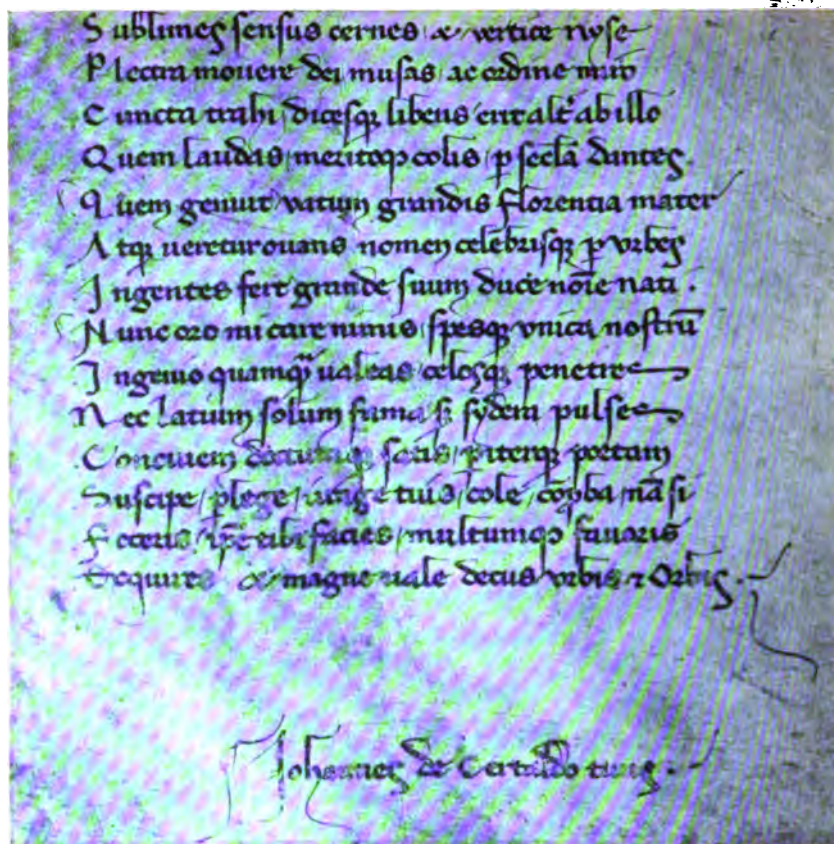 Sublimes sensus cernes & vertice nyse
Plectra movere dei musas ac ordine miro
Cuncta trahi dicesq; libens erit alt' ab illo
Quem laudas meritoq; colis p secla dantes.
Quem genuit vatum grandis florentia mater
Atq; veretur ovans nomen celebrisq; p vrbes
Ingentes fert grande suum duce noīe nati.
Nunc oro mi care nimis spesq; vnica nostrū
Ingenio quamq̄ valeas celosq; penetres
Nec latium solum fama s; sydera pulses
Concivem doctumq; satis piterq; poetam
Suscipe / plege / iunge tuis / cole / cōproba / nā si
Feceris / ipē tibi facies / multumq; favoris
& magne vale decus vrbis & orbis.
Iohannes de Certaldo tuus.